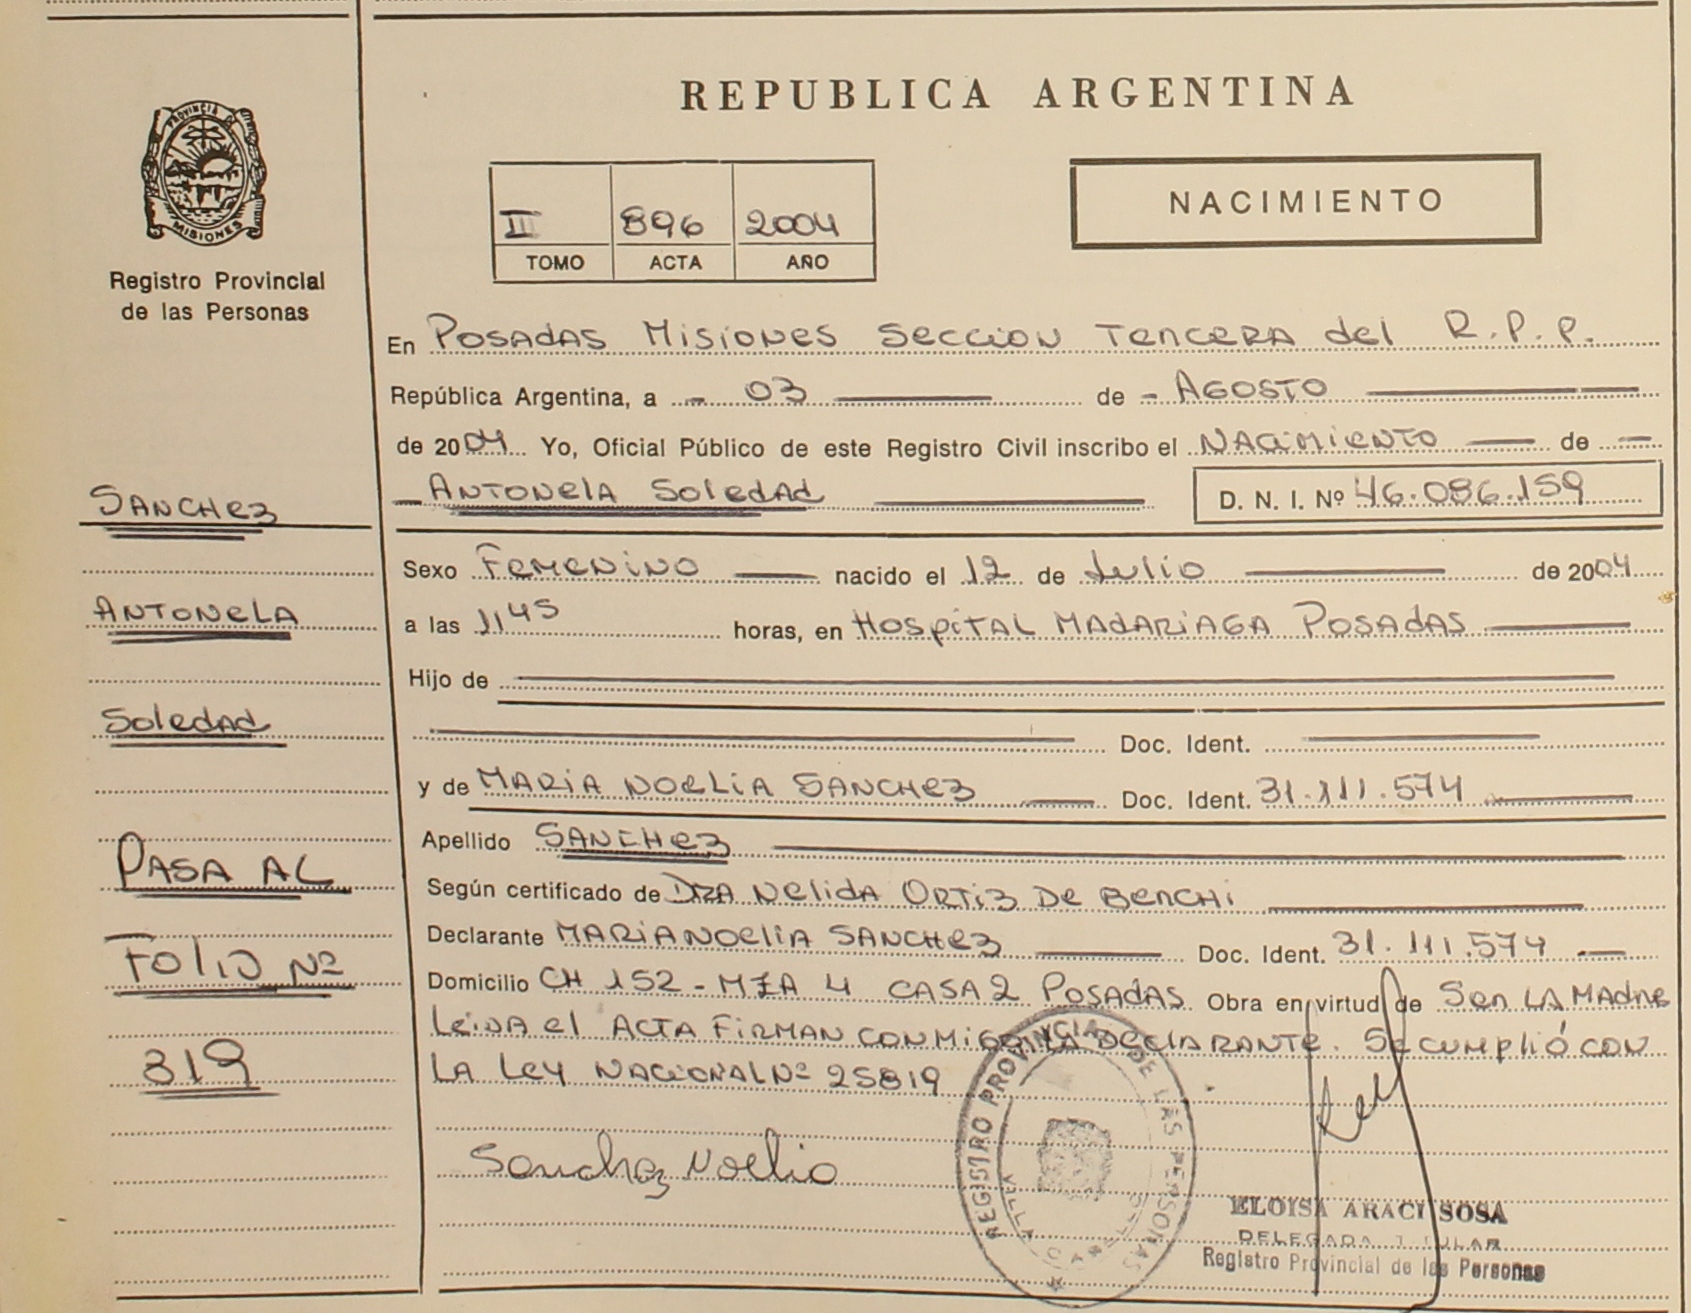 REPUBLICA ARGENTINA
PROVINCIA DE
MISIONES
Registro Provincial
de las Personas
II 896 2004
TOMO ACTA AÑO
NACIMIENTO
En POSADAS MISIONES SECCION TERCERA del R.P.P.
República Argentina, a - 03 de - AGOSTO
de 2004 Yo, Oficial Público de este Registro Civil inscribo el NACIMIENTO de
ANTONELA SOLEDAD D. N. I. Nº 46.086.159
SANCHEZ
Sexo FEMENINO nacido el 12 de Julio de 2004
ANTONELA
a las 11 45 horas, en HOSPITAL MADARIAGA POSADAS
Hijo de
SOLEDAD
Doc. Ident.
y de MARIA NOELIA SANCHEZ Doc. Ident. 31.111.574
Apellido SANCHEZ
PASA AL
Según certificado de DRA NELIDA ORTIZ DE BENCHI
Declarante MARIA NOELIA SANCHEZ Doc. Ident. 31.111.574
FOLIO Nº
Domicilio CH 152 - MZA 4 CASA 2 POSADAS Obra en virtud de SER LA MADRE
LEIDA el ACTA FIRMAN CONMIGO LA DECLARANTE. SE CUMPLIÓ CON
319
LA LEY NACIONAL Nº 25819
Sanchez Noelia
REGISTRO PROVINCIAL DE LAS PERSONAS
ELOISA ARACI SOSA
DELEGADA TITULAR
Registro Provincial de las Personas